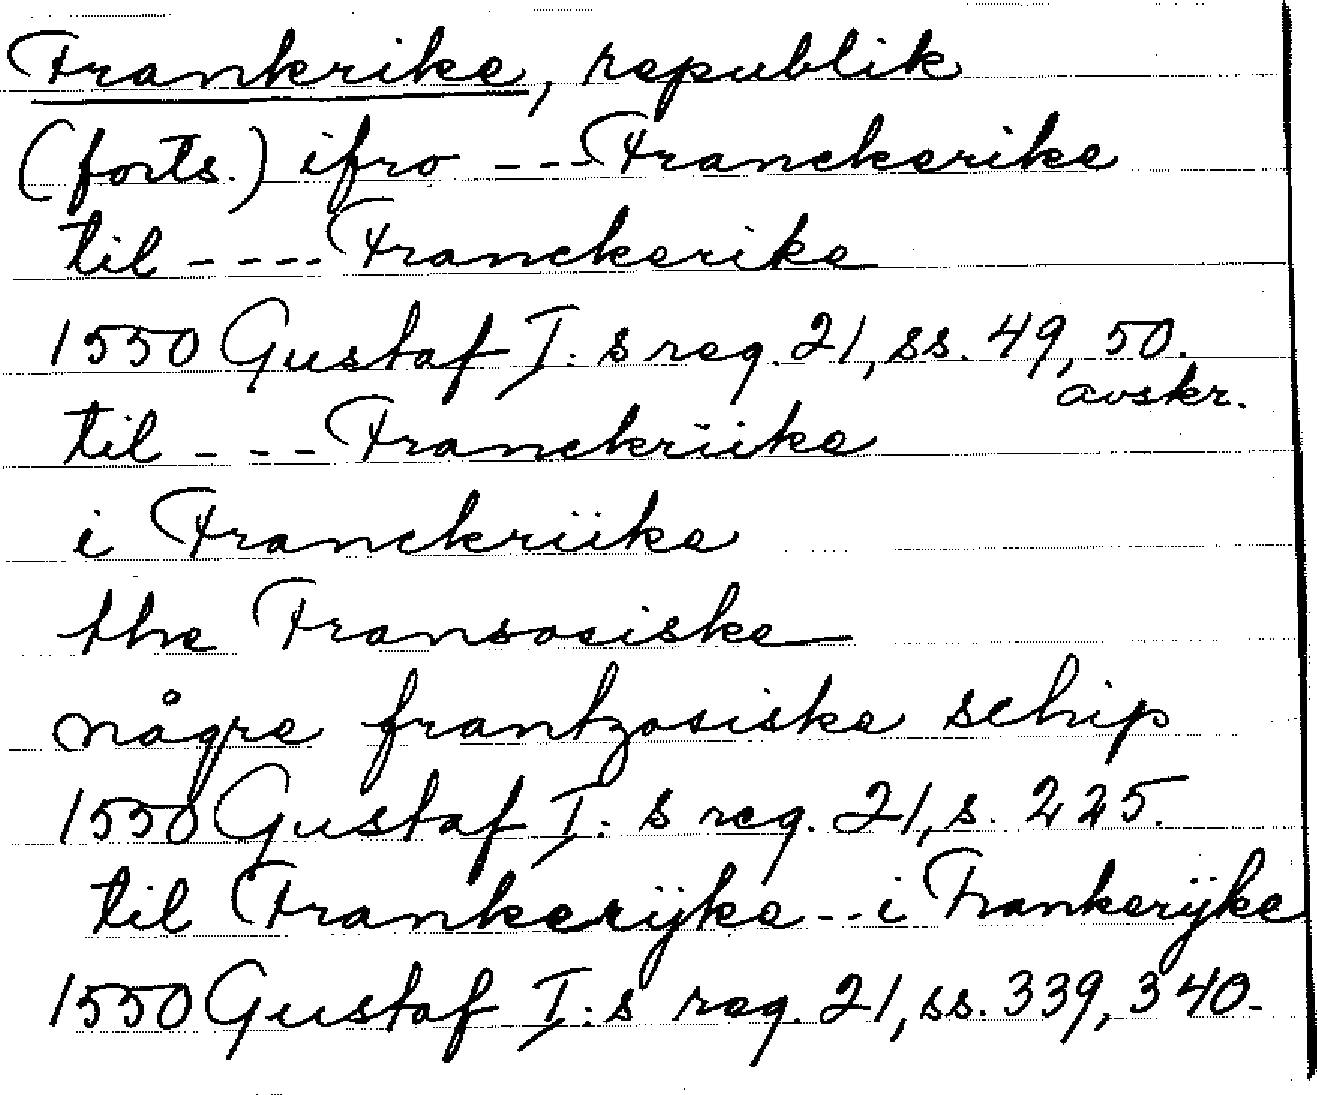 Frankrike, republik
(forts.) ifro - - - Franckerike
til - - - - Franckerike
1550 Gustaf I. s reg. 21, ss. 49, 50.
avskr.
til - - - Franckriike
i Franckriike
the Fransosiske
någre frantzosiske schip
1550 Gustaf I: s reg. 21, s. 225.
til Frankerÿke - - i Frankerÿke
1550 Gustaf I: s reg. 21, ss. 339, 340.